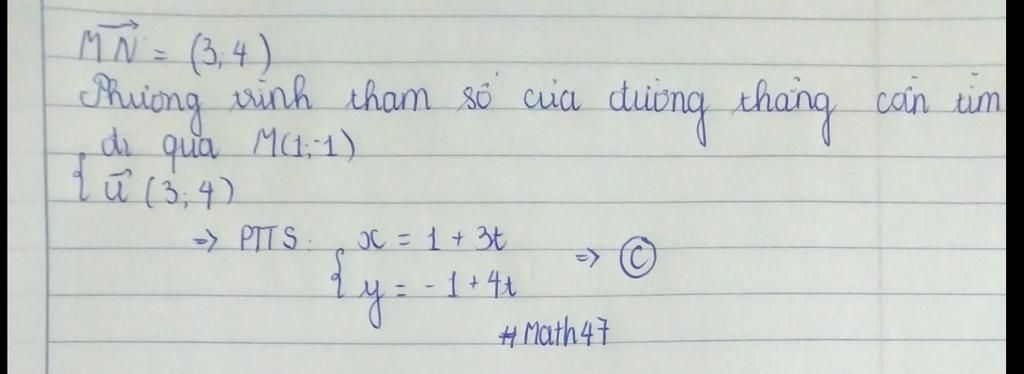 MN→ = (3; 4)
Phương trình tham số của đường thẳng cần tìm
{ đi qua M(1;-1)
{ u→ (3; 4)
=> PTTS: { x = 1 + 3t => Ⓒ
{ y = -1 + 4t
#Math47